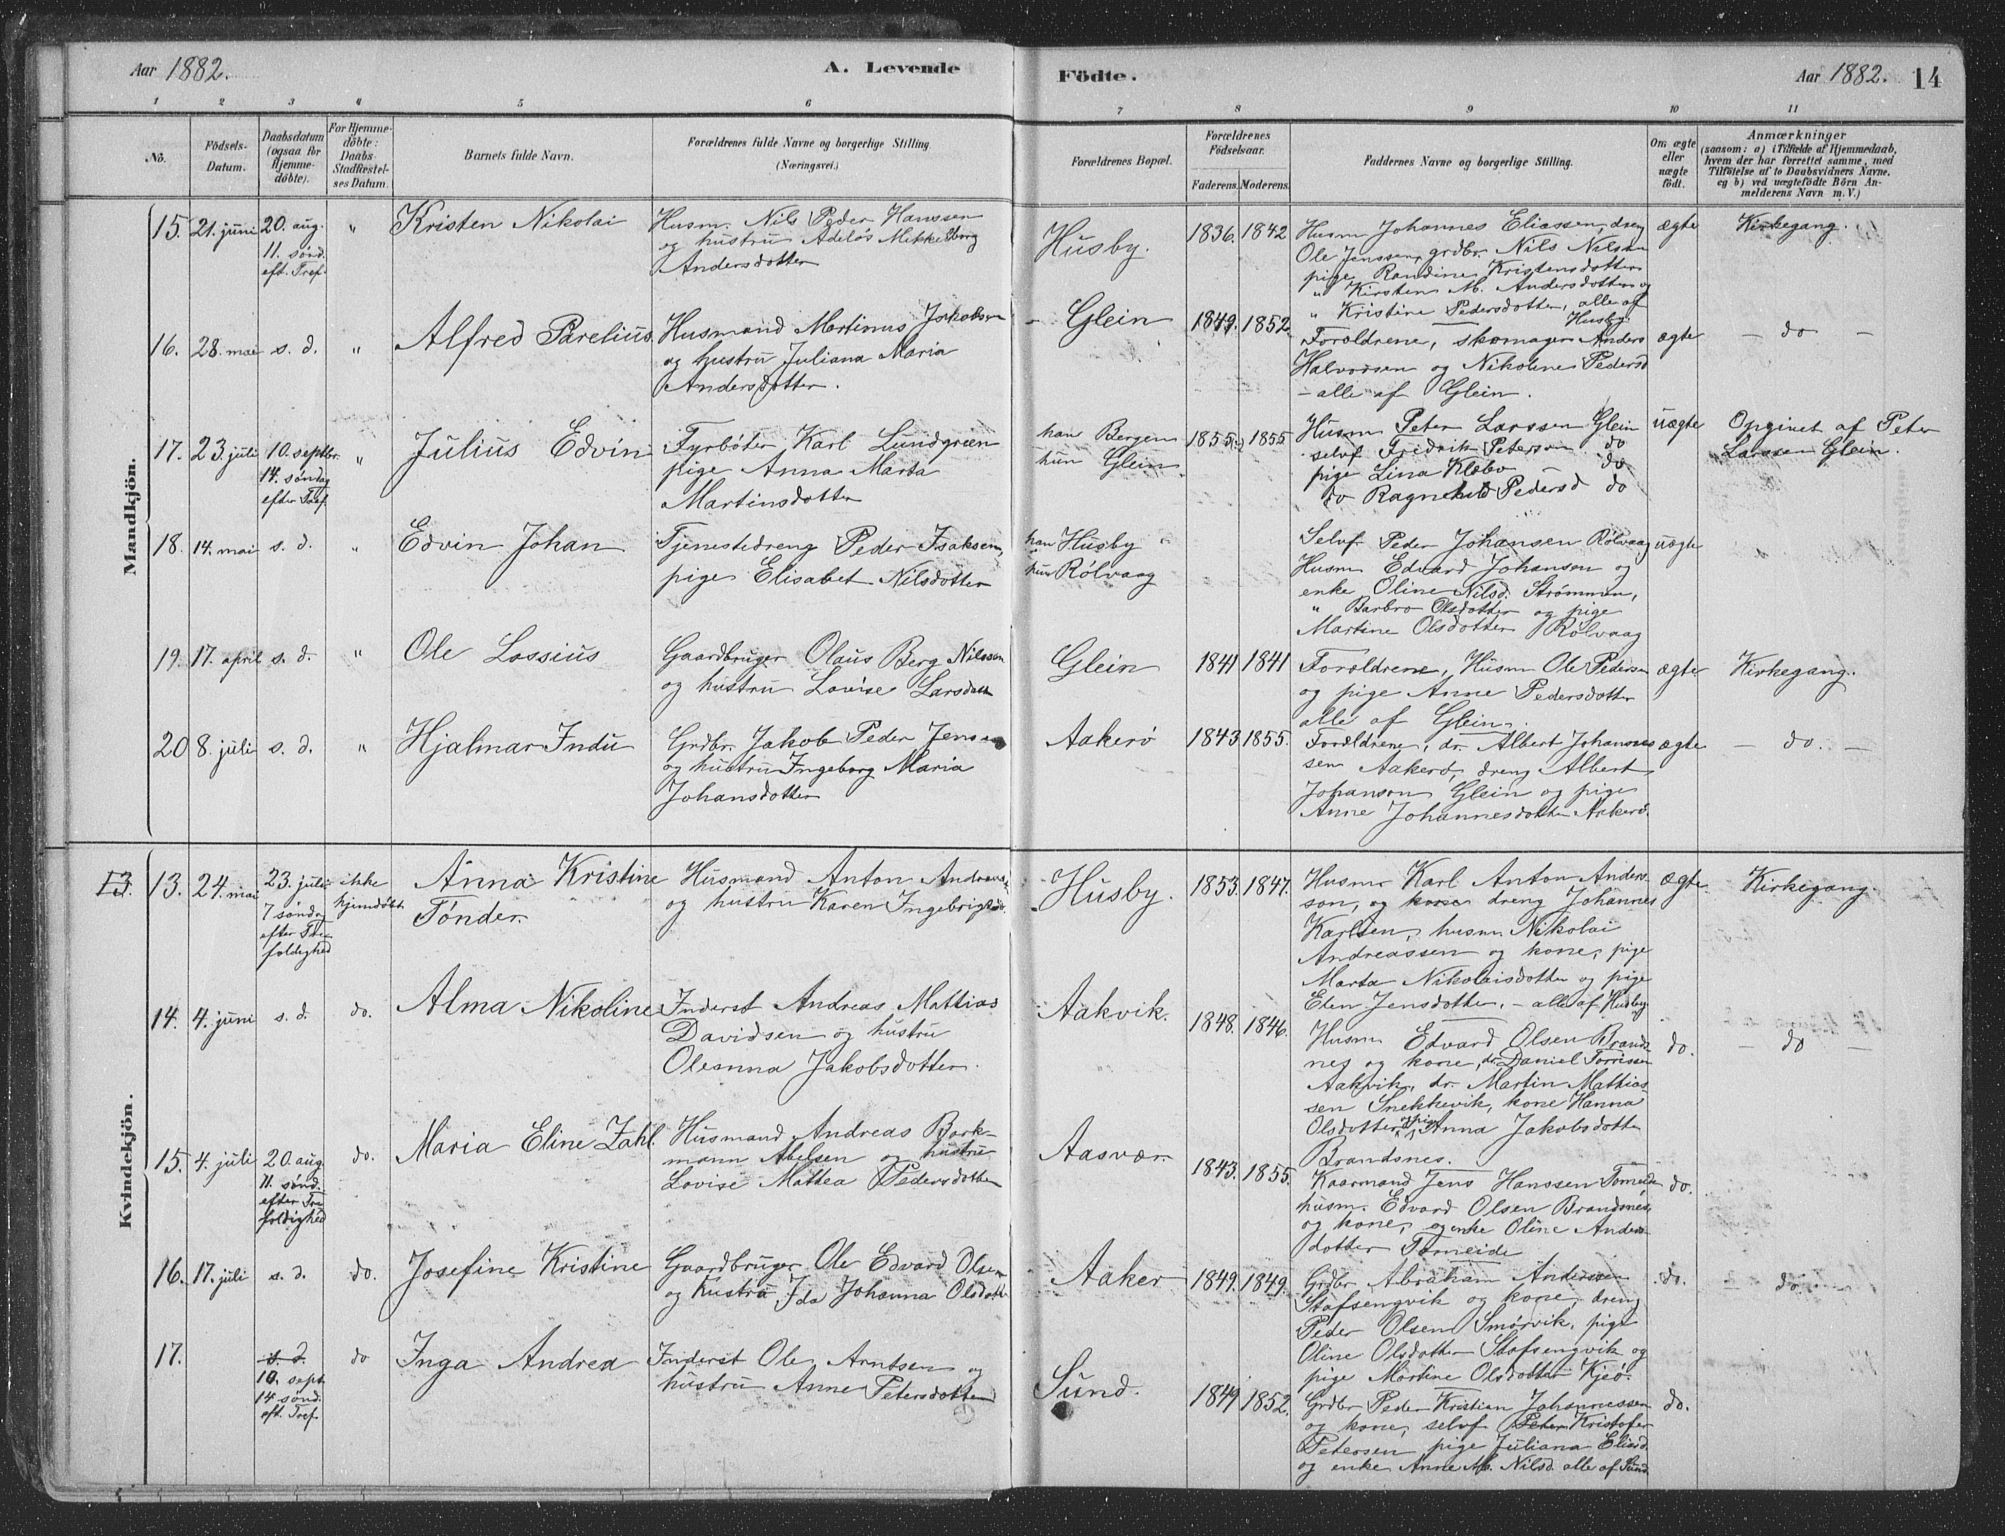 Aar 1882.
A. Levende
Födte.
Aar 1882.
14
1 2 3 4 5 6 7 8 9 10 11
No.
Födsels-
Datum.
Daabsdatum
(ogsaa for
Hjemme-
döbte).
For Hjemme-
döbte:
Daabs-
Stadfæstel-
ses Datum.
Barnets fulde Navn.
Forældrenes fulde Navne og borgerlige Stilling
(Næringsvei.)
Forældrenes Bopæl.
Forældrenes
Födselsaar.
Faderens. Moderens.
Faddernes Navne og borgerlige Stilling.
Om ægte
eller
uægte
födt.
Anmærkninger
(saasom: a) i Tilfælde af Hjemmedaab,
hvem der har forrettet samme, med
Tilföielse af to Daabsvidners Navne,
og b) ved uægtefödte Börn An-
melderens Navn m. V.)
Mandkjön.
15. 21. juni
20. aug.
11. sønd.
eft. Tref.
"
Kristen Nikolai
Husm. Nils Peder Hanssen
og hustru Adelös Mikkelborg
Andersdotter
Husby.
1836. 1842
Husm Johannes Eliassen, dreng
Ole Jenssen, grdbr. Nils Nilsen
pige Randine Kristensdotter
" Kirsten M. Andersdotter og
" Kristine Pedersdotter, alle af
Husby.
ægte
Kirkegang.
16. 28. mai s. d. "
Alfred Parelius
Husmand Martinus Jakobsen
og hustru Juliana Maria
Andersdotter.
Glein
1849. 1852
Forældrene, skomager Anders
Halvorsen og Nikoline Pedersd
- alle af Glein.
ægte
- do -
17. 23. juli
10. septbr.
14. søndag
efter Tref.
"
Julius Edvin
Fyrbøter Karl Lundgreen
pige Anna Marta
Martinsdotter
han Bergen
hun Glein
1855. 1855
Husm Peter Larssen Glein
selvf Fredrik Peterson do
pige Lina Klæbo - do
do Ragnehild Pedersd do
uægte
Opgivet af Peter
Larssen Glein.
18. 14. mai s. d. "
Edvin Johan
Tjenestedreng Peder Isaksen,
pige Elisabet Nilsdotter
han Husby
hun Rølvaag
Selvf Peder Johansen Rølvaag
Husm Edvard Johansen og
enke Oline Nilsd. Strømmen,
" Barbro Olsdotter og pige
Martine Olsdotter Rølvaag
uægte
19. 17. april s. d. "
Ole Lossius
Gaardbruger Olaus Berg Nilssen
og hustru Lovise Larsdotter
Glein
1841 1841
Forældrene, Husm Ole Pedersen
og pige Anne Pedersdotter
alle af Glein.
ægte
Kirkegang.
20 8. juli s. d. "
Hjalmar Indu
Grdbr. Jakob Peder Jensen
og hustru Ingeborg Maria
Johansdotter
Aakerø
1843 1855.
Forældrene, dr. Albert Johannes
sen Aakerø, dreng Albert
Johanson Glein og pige
Anne Johannesdotter Aakerø.
ægte
- do. -
Kvindekjön.
13. 13. 24. mai
23. juli
7 søndag
efter Tre-
foldighed
ikke
hjemdøbt.
Anna Kristine
Tønder.
Husmand Anton Andreas
og hustru Karen Ingebrigtsd.
Husby.
1853. 1847.
Husm Karl Anton Anders-
son, og kone dreng Johannes
Karlsen, husm Nikolai
Andreassen og kone, pige
Marta Nikolaisdotter og pige
Elen Jensdotter, - alle af Husby
ægte
Kirkegang
14. 4. juni s. d. do.
Alma Nikoline
Inderst Andreas Mattias
Davidsen og hustru
Oleanna Jakobsdotter.
Aakvik.
1848. 1846.
Husm Edvard Olsen Brands-
nes og kone, dr. Daniel Torrissen
Aakvik, dr. Martin Mattias-
sen Snekkevik, kone Hanna
Olsdotter og pige Anna Jakobsdotter
Brandsnes.
do.
- do -
15. 4. juli
20. aug.
11. sønd.
efter Tre
foldighed
do.
Maria Eline Zahl
Husmand Andreas Bork-
mann Abelsen og hustru
Lovise Mattea Pedersdotter
Aasvær.
1843. 1855.
Kaarmand Jens Hanssen Tømeide
husm. Edvard Olsen Brandsnes,
og kone, og enke Oline Anders-
dotter Tømeide
do.
16. 17. juli s. d. do.
Josefine Kristine
Gaardbruger Ole Edvard Olsen
og hustru Ida Johanna Olsdotter
Aaker
1849. 1849.
Grdbr Abraham Anderssen
Stafsengvik og kone, dreng
Peder Olsen Smørvik, pige
Oline Olsdotter Stafsengvik og
pige Martine Olsdotter Kjeø.
do.
do.
17.
s. d.
10. sept.
14 sønd.
eft. Tref.
do
Inga Andrea
Inderst Ole Arntsen og
hustru Anne Petersdotter
Sund.
1849 1852.
Grdbr Peder Kristian Johannessen
og kone, selvf Peter Kristofer
Petersen, pige Juliana Eliasd.
og enke Anne M. Nilsd. alle af Sund.
do.